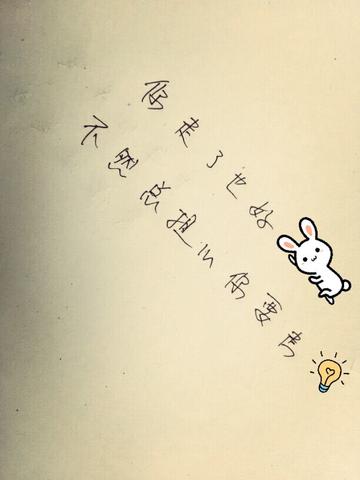 你走了也好
不然总担心你要走